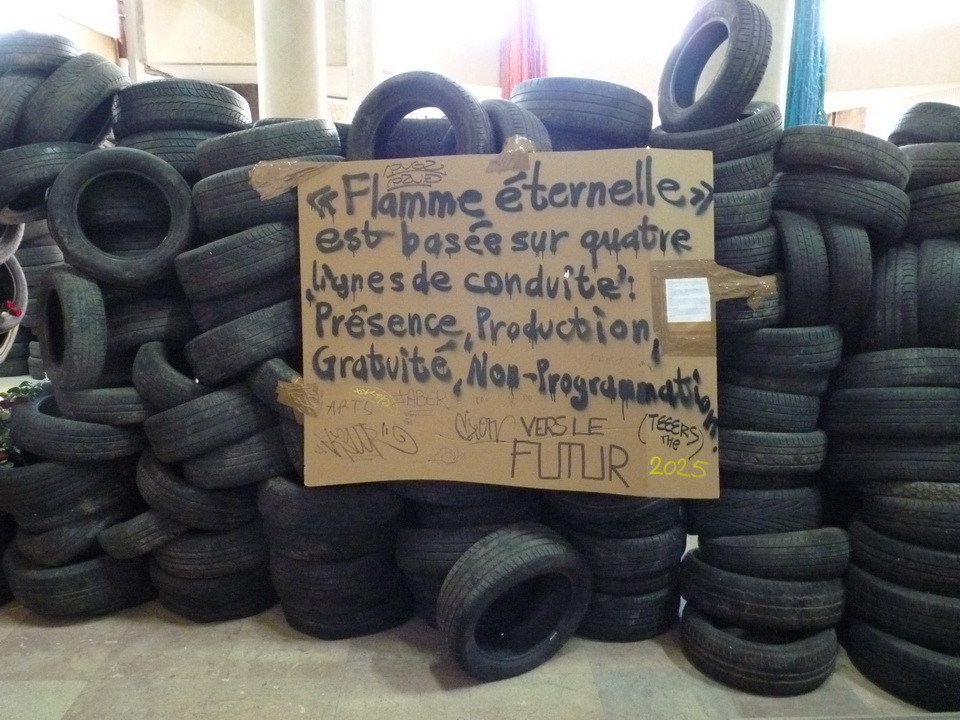 « Flamme éternelle »
est basée sur quatre
lignes de conduite :
Présence, Production,
Gratuité, Non-Programmation.
ARTS
VERS LE
FUTUR
(TEEERS)
THE
2025